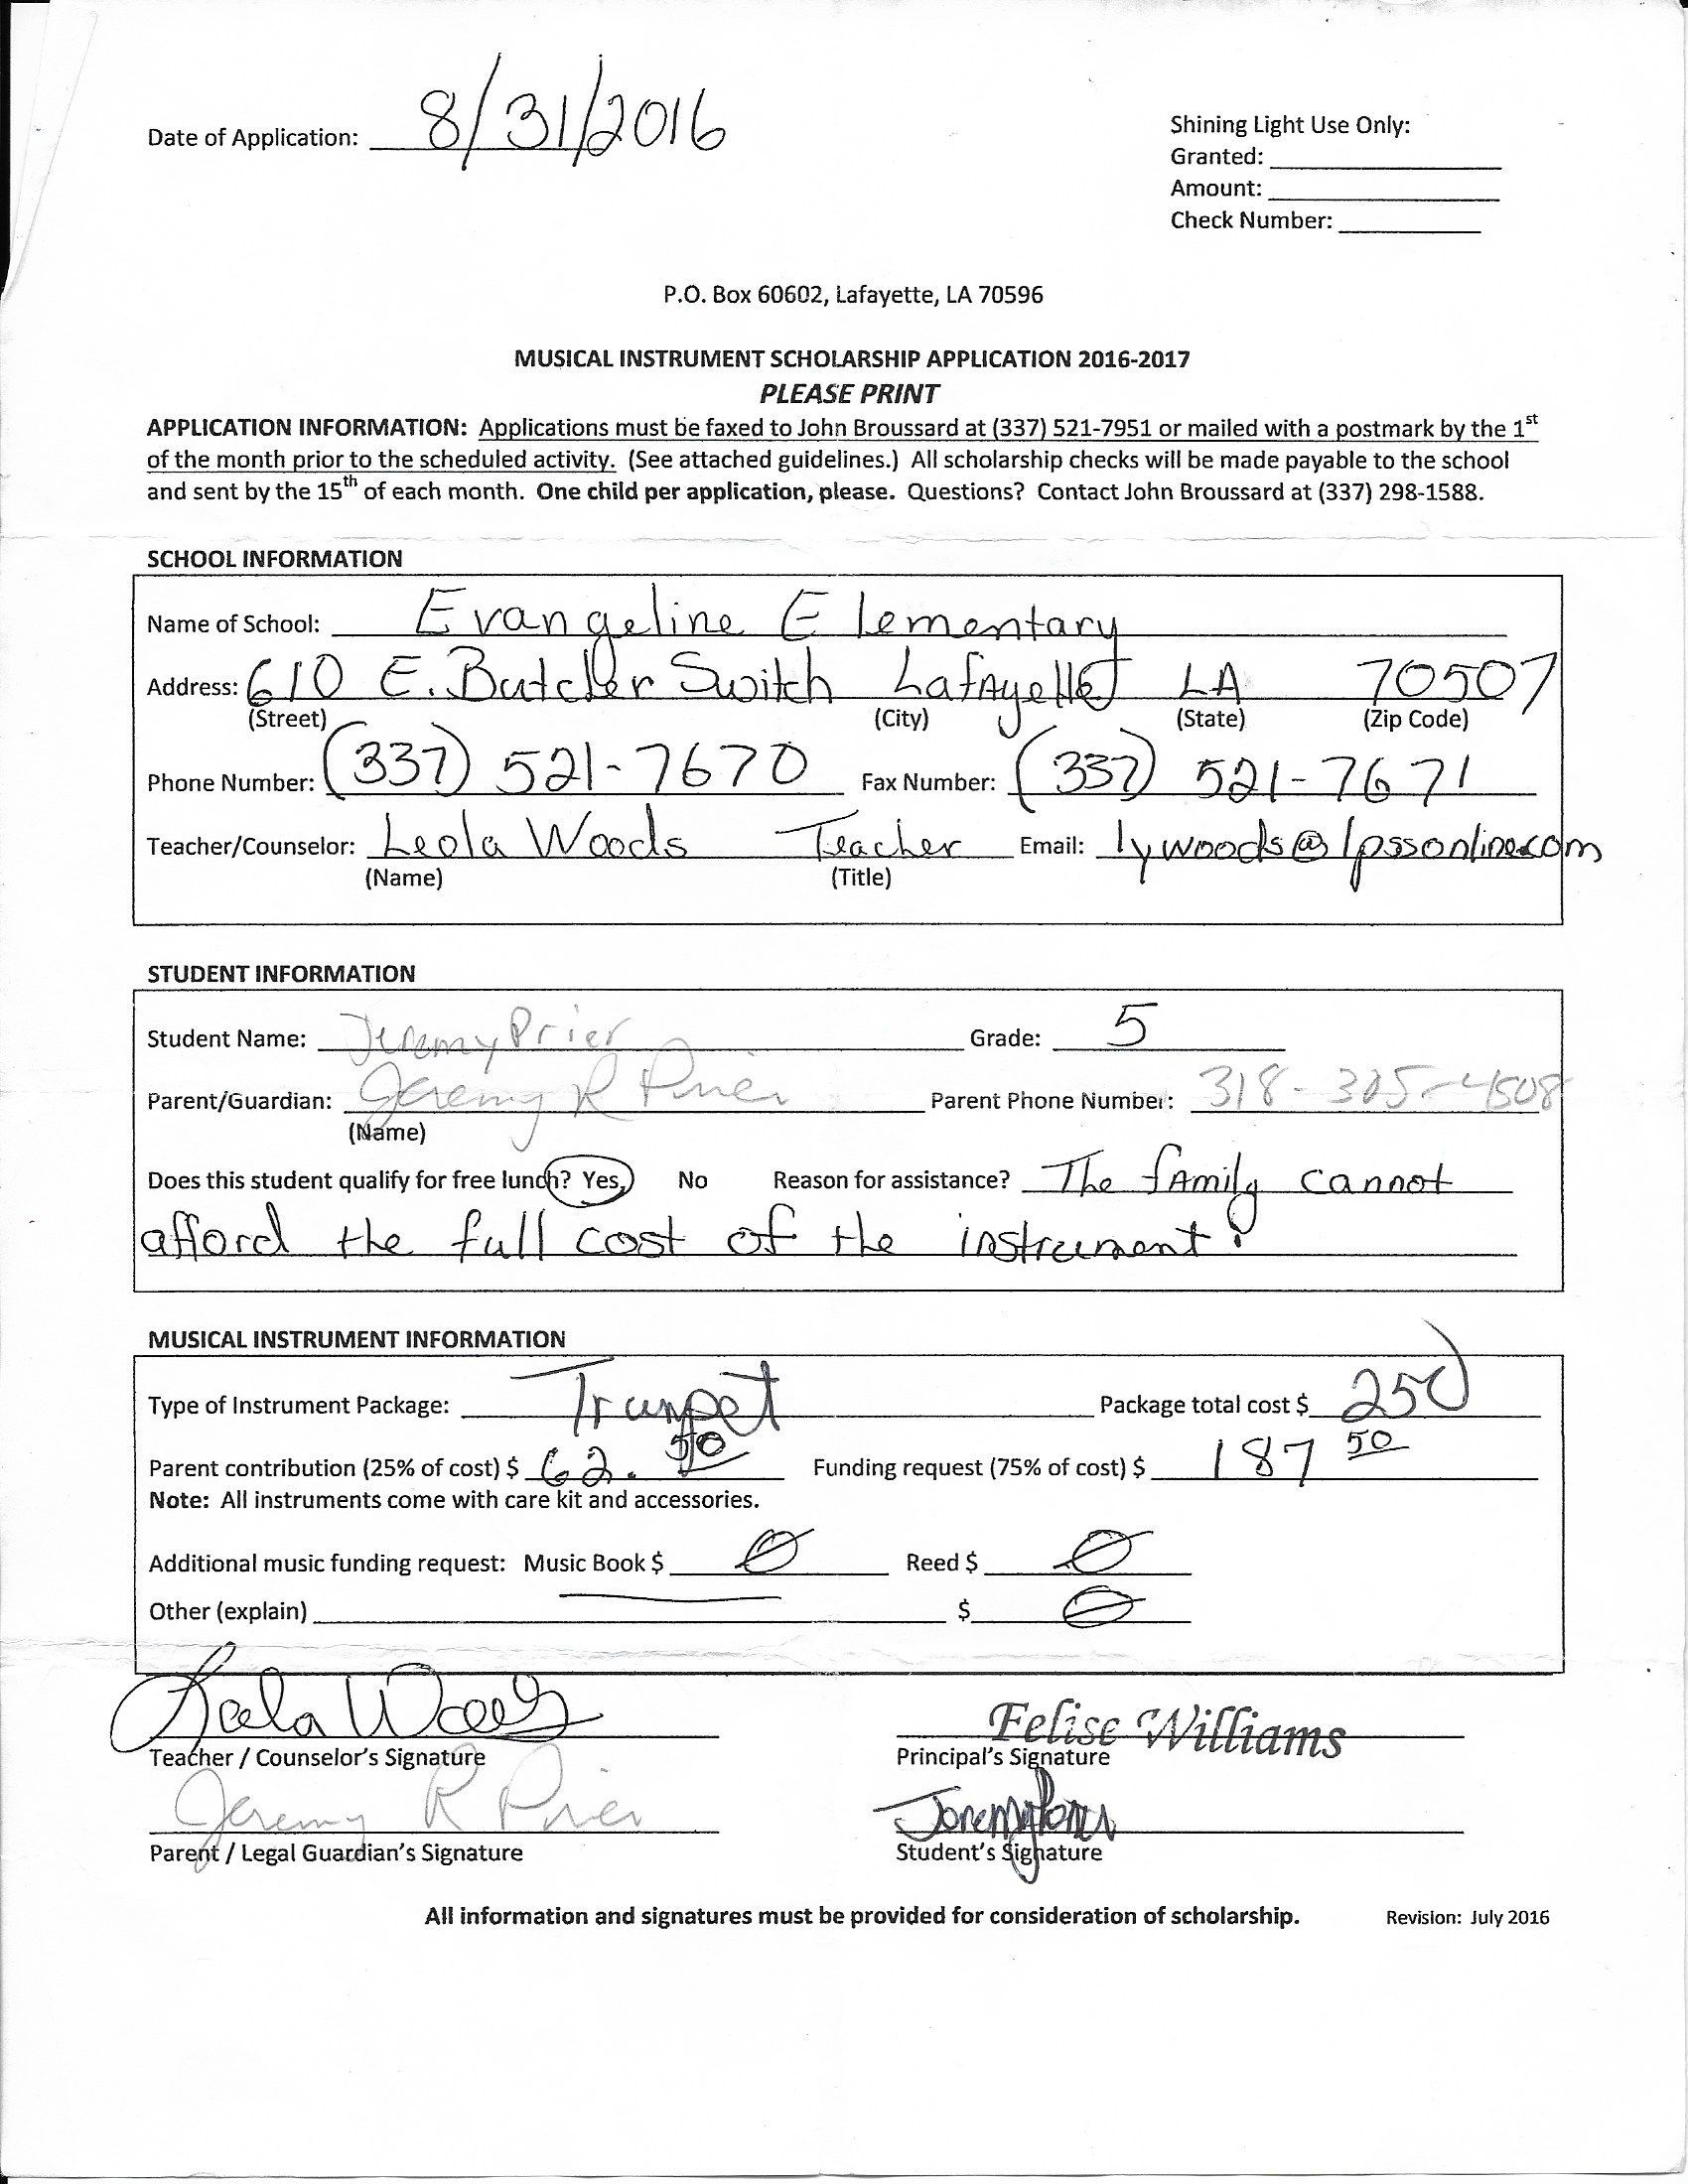 Date of Application: 8/31/2016
Shining Light Use Only:
Granted:
Amount:
Check Number:
P.O. Box 60602, Lafayette, LA 70596
MUSICAL INSTRUMENT SCHOLARSHIP APPLICATION 2016-2017
PLEASE PRINT
APPLICATION INFORMATION: Applications must be faxed to John Broussard at (337) 521-7951 or mailed with a postmark by the 1st
of the month prior to the scheduled activity. (See attached guidelines.) All scholarship checks will be made payable to the school
and sent by the 15th of each month. One child per application, please. Questions? Contact John Broussard at (337) 298-1588.
SCHOOL INFORMATION
Name of School: Evangeline Elementary
Address: 610 E. Butcher Switch Lafayette LA 70507
(Street) (City) (State) (Zip Code)
Phone Number: (337) 521-7670 Fax Number: (337) 521-7671
Teacher/Counselor: Leola Woods Teacher Email: lywoods@lpssonline.com
(Name) (Title)
STUDENT INFORMATION
Student Name: Jeremy Prier Grade: 5
Parent/Guardian: Jeremy R Prier Parent Phone Number: 318-305-4508
(Name)
Does this student qualify for free lunch? Yes, No Reason for assistance? The family cannot
afford the full cost of the instrument.
MUSICAL INSTRUMENT INFORMATION
Type of Instrument Package: Trumpet Package total cost $ 250
Parent contribution (25% of cost) $ 62.50 Funding request (75% of cost) $ 187 50
Note: All instruments come with care kit and accessories.
Additional music funding request: Music Book $ 0 Reed $ 0
Other (explain) $ 0
Leola Woods Felise Williams
Teacher / Counselor's Signature Principal's Signature
Jeremy R Prier Jeremy Prier
Parent / Legal Guardian's Signature Student's Signature
All information and signatures must be provided for consideration of scholarship. Revision: July 2016